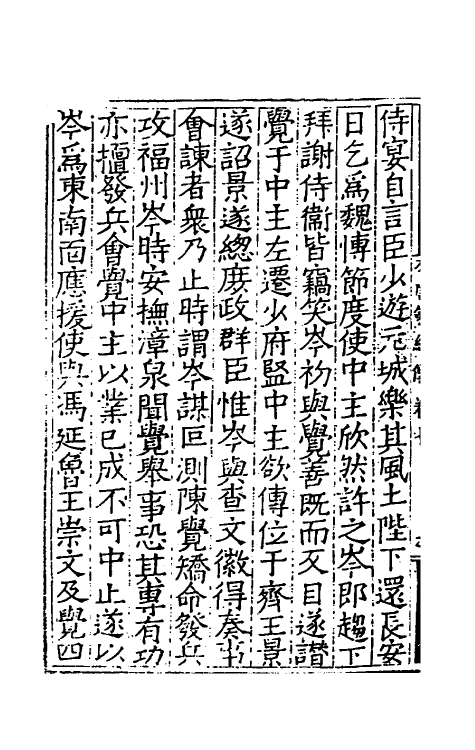 侍宴自言臣少遊元城樂其風土陛下還長安
日乞爲魏博節度使中主欣然許之岑即趨下
拜謝侍衞皆竊笑岑初與覺善既而反目遂譖
覺于中主左遷少府監中主欲傳位于齊王景
遂詔景遂緫庻政群臣惟岑與查文徽得奏事
會諫者衆乃止時謂岑謀叵測陳覺矯命發兵
攻福州岑時安撫漳泉聞覺舉事恐其專有功
亦擅發兵會覺中主以業已成不可中止遂以
岑爲東南面應援使與馮延魯王崇文及覺四